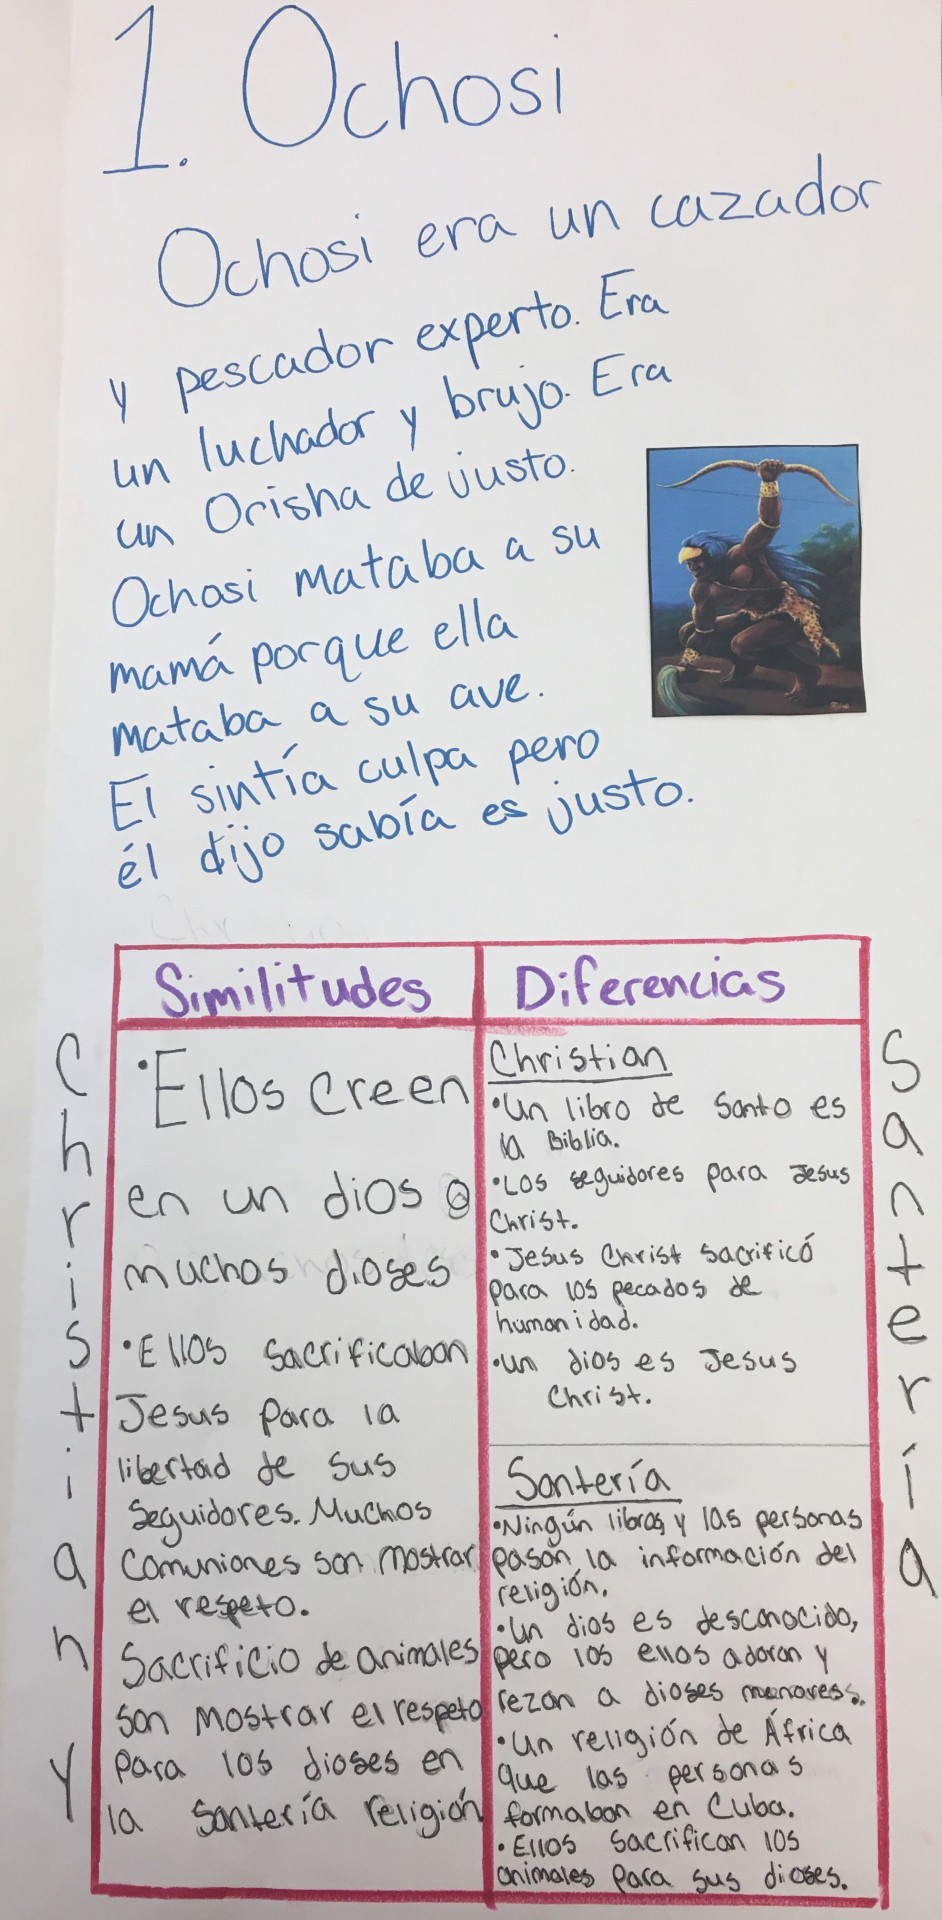 1. Ochosi
Ochosi era un cazador
y pescador experto. Era
un luchador y brujo. Era
un Orisha de justo.
Ochosi mataba a su
mamá porque ella
mataba a su ave.
El sintía culpa pero
él dijo sabía es justo.
Similitudes
Diferencias
Christianhy
•Ellos creen
en un dios o
muchos dioses
•Ellos sacrificaban
Jesus para la
libertad de sus
seguidores. Muchos
comuniones son mostrar
el respeto.
Sacrificio de animales
son mostrar el respeto
para los dioses en
la santería religión
Christian
•Un libro de Santo es
la Biblia.
•Los seguidores para Jesus
Christ.
•Jesus Christ sacrificó
para los pecados de
humanidad.
•un dios es Jesus
Christ.
Santería
•Ningún libros y las personas
pasan la información del
religión.
•Un dios es desconocido,
pero los ellos adoran y
rezan a dioses menores.
•Un religión de África
que las personas
formaban en Cuba.
•Ellos sacrifican los
animales para sus dioses.
Santería